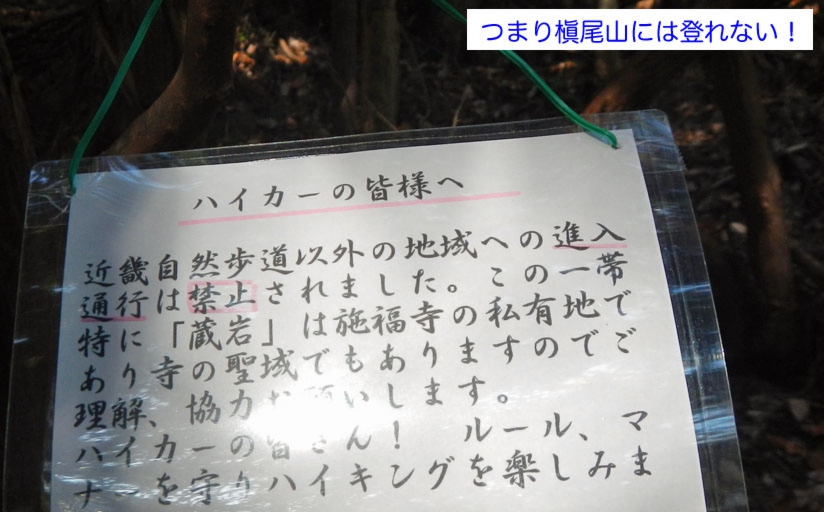 つまり槇尾山には登れない！
ハイカーの皆様へ
近畿自然歩道以外の地域への進入
通行は禁止されました。この一帯
特に「蔵岩」は施福寺の私有地で
あり寺の聖域でもありますのでご
理解、協力お願いします。
ハイカーの皆さん！　ルール、マ
ナーを守りハイキングを楽しみま